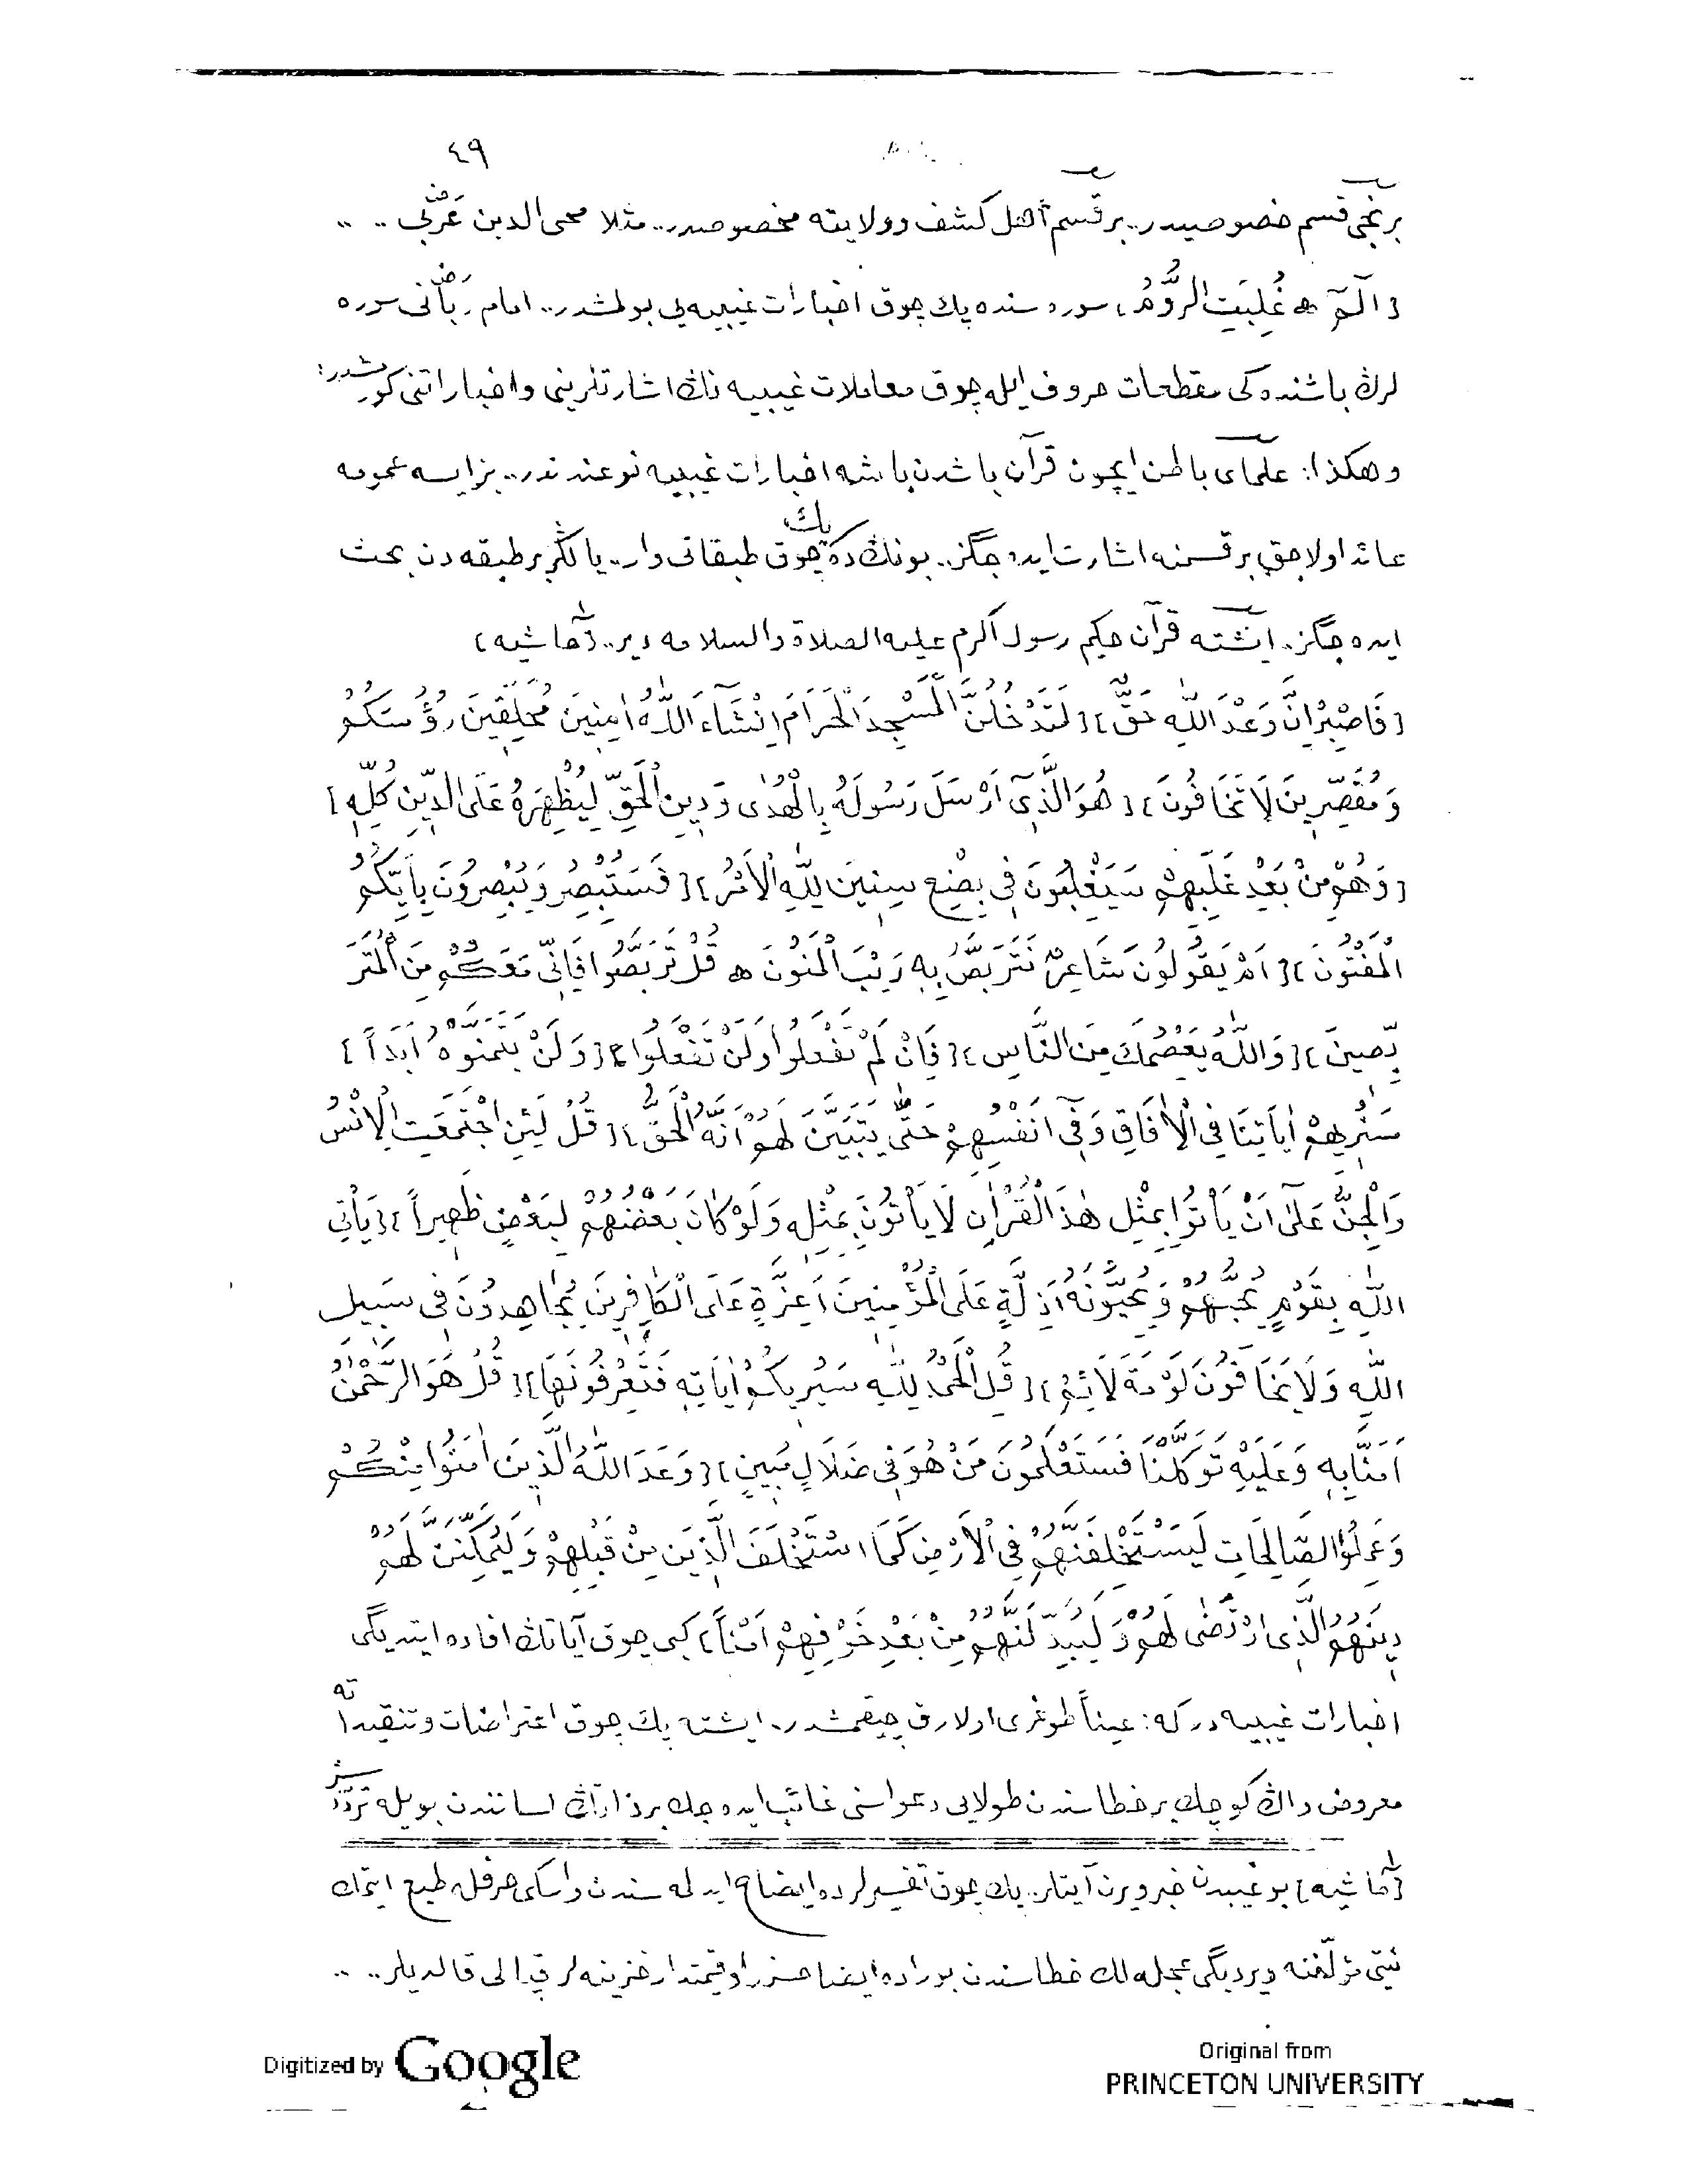 ٤٩
بر نجى قسم خصوصيدر.. بر قسم اهل كشف وولايته مخصوصدر.. مثلا محى الدين عربى .. ..
{ الٓمٓ ۞ غُلِبَتِ الرُّومُ } سوره سنده پك چوق اخبارات غيبيه يى بولمشدر.. امام ربّانى سوره
لرڭ باشنده كى مقطعات حروف ايله چوق معاملات غيبيه نڭ اشارتلرينى و اخباراتنى كورمشدر:
وهكذا: علماى باطن ايچون قرآن باشدن باشه اخبارات غيبيه نوعندندر.. بز ايسه عمومه
عائد اولاجق بر قسمنه اشارت ايده جگز.. بونڭ ده پك چوق طبقاتى وار.. يالڭز بر طبقه دن بحث
ايده جگز.. ايشته قرآن حكيم رسول اكرم عليه الصلاة والسلامه دير.. {حاشيه}
{ فَاصْبِرْ اِنَّ وَعْدَ اللّٰهِ حَقٌّ } { لَتَدْخُلُنَّ الْمَسْجِدَ الْحَرَامَ اِنْشَآءَ اللّٰهُ اٰمِنِينَ مُحَلِّقِينَ رُؤُسَكُمْ
وَمُقَصِّرِينَ لَا تَخَافُونَ } { هُوَ الَّذِٓى اَرْسَلَ رَسُولَهُ بِالْهُدٰى وَدِينِ الْحَقِّ لِيُظْهِرَهُ عَلَى الدِّينِ كُلِّهِ }
{ وَهُمْ مِنْ بَعْدِ غَلَبِهِمْ سَيَغْلِبُونَ فِى بِضْعِ سِنِينَ لِلّٰهِ الْاَمْرُ } { فَسَتُبْصِرُ وَيُبْصِرُونَ بِاَيِّكُمُ
الْمَفْتُونُ } { اَمْ يَقُولُونَ شَاعِرٌ نَتَرَبَّصُ بِهِ رَيْبَ الْمَنُونِ ۞ قُلْ تَرَبَّصُوا فَاِنِّى مَعَكُمْ مِنَ الْمُتَرَ
بِّصِينَ } { وَاللّٰهُ يَعْصِمُكَ مِنَ النَّاسِ } { فَاِنْ لَمْ تَفْعَلُوا وَلَنْ تَفْعَلُوا } { وَلَنْ يَتَمَنَّوْهُ اَبَداً }
سَنُرِيهِمْ اٰيَاتِنَا فِى الْاٰفَاقِ وَفِٓى اَنْفُسِهِمْ حَتّٰى يَتَبَيَّنَ لَهُمْ اَنَّهُ الْحَقُّ } { قُلْ لَئِنِ اجْتَمَعَتِ الْاِنْسُ
وَالْجِنُّ عَلٰٓى اَنْ يَأْتُوا بِمِثْلِ هٰذَا الْقُرْاٰنِ لَا يَأْتُونَ بِمِثْلِهِ وَلَوْ كَانَ بَعْضُهُمْ لِبَعْضٍ ظَهِيراً } { يَأْتِى
اللّٰهُ بِقَوْمٍ يُحِبُّهُمْ وَيُحِبُّونَهُ اَذِلَّةٍ عَلَى الْمُؤْمِنِينَ اَعِزَّةٍ عَلَى الْكَافِرِينَ يُجَاهِدُونَ فِى سَبِيلِ
اللّٰهِ وَلَا يَخَافُونَ لَوْمَةَ لَائِمٍ } { قُلِ الْحَمْدُ لِلّٰهِ سَيُرِيكُمْ اٰيَاتِهِ فَتَعْرِفُونَهَا } { قُلْ هُوَ الرَّحْمٰنُ
اٰمَنَّا بِهِ وَعَلَيْهِ تَوَكَّلْنَا فَسَتَعْلَمُونَ مَنْ هُوَ فِى ضَلَالٍ مُبِينٍ } { وَعَدَ اللّٰهُ الَّذِينَ اٰمَنُوا مِنْكُمْ
وَعَمِلُوا الصَّالِحَاتِ لَيَسْتَخْلِفَنَّهُمْ فِى الْاَرْضِ كَمَا اسْتَخْلَفَ الَّذِينَ مِنْ قَبْلِهِمْ وَلَيُمَكِّنَنَّ لَهُمْ
دِينَهُمُ الَّذِى ارْتَضٰى لَهُمْ وَلَيُبَدِّلَنَّهُمْ مِنْ بَعْدِ خَوْفِهِمْ اَمْناً } كبى چوق آياتڭ افاده ايتديگى
اخبارات غيبيه در كه: عيناً طوغرى اولارق چيقمشدر. ايشته پك چوق اعتراضات و تنقيداته
معروض و اڭ كوچك بر خطاسندن طولايى دعواسنى غائب ايده جك بر ذاتڭ لسانندن بويله تردّدسز
{حاشيه} بو غيبدن خبر ويرن آيتلر.. پك چوق تفسيرلرده ايضاح ايدلمه سندن و اسكى حرفله طبع ايتمك
نيتى مؤلّفنه ويرديگى عجله لك خطاسندن بوراده ايضاحسز او قيمتدار خزينه لر قپالى قالديلر.. ..
Digitized by Google
Original from
PRINCETON UNIVERSITY